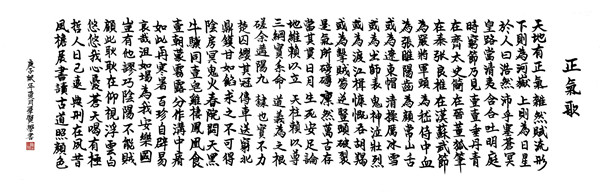 正氣歌
天地有正氣雜然賦流形
下則為河嶽上則為日星
於人曰浩然沛乎塞蒼冥
皇路當清夷含和吐明庭
時窮節乃見壹壹垂丹青
在齊太史簡在晉董狐筆
在秦張良椎在漢蘇武節
為嚴將軍頭為嵇侍中血
為張睢陽齒為顏常山舌
或為遼東帽清操厲冰雪
或為出師表鬼神泣壯烈
或為渡江楫慷慨吞胡羯
或為擊賊笏逆豎頭破裂
是氣所磅礴凜然萬古存
當其貫日月生死安足論
地維賴以立天柱賴以尊
三綱實系命道義為之根
嗟余遘陽九隸也實不力
楚囚纓其冠傳車送窮北
鼎鑊甘如飴求之不可得
陰房冥鬼火春院閟天黑
牛驥同壹皂雞棲鳳凰食
壹朝蒙霧露分作溝中瘠
如此再寒暑百沴自辟易
哀哉沮洳場為我安樂國
豈有他謬巧陰陽不能賊
顧此耿耿在仰視浮雲白
悠悠我心憂蒼天曷有極
哲人日已遠典刑在夙昔
風檐展書讀古道照顏色
年夏月書